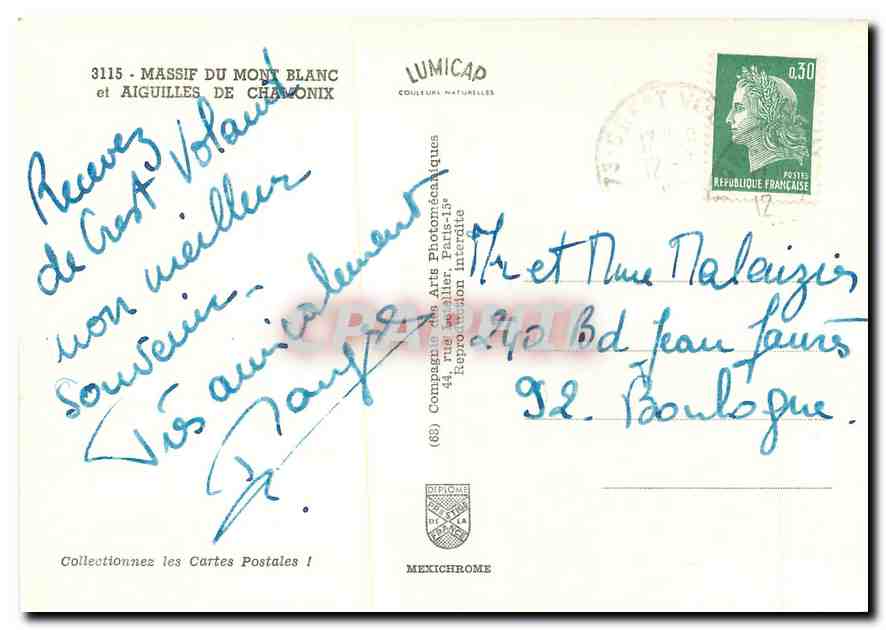 3115 - MASSIF DU MONT BLANC
et AIGUILLES DE CHAMONIX
Recevez
de Crest Voland
mon meilleur
souvenir.
Très amicalement
Collectionnez les Cartes Postales !
LUMICAP
COULEURS NATURELLES
(63) Compagnie des Arts Photomécaniques
44, rue Letellier, Paris-15e
Reproduction interdite
DIPLOME
PRESTIGE
DE LA
FRANCE
MEXICHROME
0,30
POSTES
REPUBLIQUE FRANÇAISE
CREST VO
12
Mr et Mme Malaizier
240 Bd Jean Jaurès
92. Boulogne.